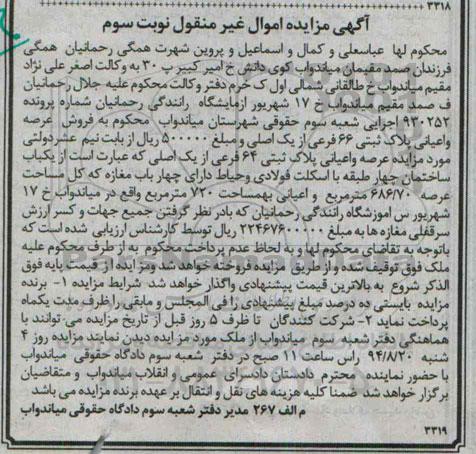 ۳۳۱۸
آگهی مزایده اموال غیر منقول نوبت سوم
محکوم لها عباسعلی و کمال و اسماعیل و پروین شهرت همگی رحمانیان همگی
فرزندان صمد مقیمان میاندواب کوی دانش خ امیر کبیر پ ۳۰ به وکالت اصغر علی نژاد
مقیم میاندواب خ طالقانی شمالی اول ک خرم دفتر وکالت محکوم علیه جلال رحمانیان
ف صمد مقیم میاندواب خ ۱۷ شهریور ازمایشگاه رانندگی رحمانیان شماره پرونده
۹۳۰۲۵۲ اجرایی شعبه سوم حقوقی شهرستان میاندواب محکوم به فروش عرصه
واعیانی پلاک ثبتی ۶۶ فرعی از یک اصلی و مبلغ ۵۰۰۰۰۰ ریال از بابت نیم عشردولتی
مورد مزایده عرصه واعیانی پلاک ثبتی ۶۴ فرعی از یک اصلی که عبارت است از یکباب
ساختمان چهار طبقه با اسکلت فولادی وحیاط دارای چهار باب مغازه که کل مساحت
عرصه ۶۸۶/۷۰ مترمربع و اعیانی بهمساحت ۷۲۰ مترمربع واقع در میاندواب خ ۱۷
شهریور س اموزشگاه رانندگی رحمانیان که بادر نظر گرفتن جمیع جهات و کسر ارزش
سرقفلی مغازه ها به مبلغ ۲۲۴۶۷۶۰۰۰۰۰ ریال توسط کارشناس ارزیابی شده است که
باتوجه به تقاضای محکوم لها و به لحاظ عدم پرداخت محکوم به از طرف محکوم علیه
ملک فوق توقیف شده و از طریق مزایده فروخته خواهد شد ومزایده از قیمت پایه فوق
الذکر شروع به بالاترین قیمت پیشنهادی واگذار خواهد شد شرایط مزایده ۱- برنده
مزایده بایستی ده درصد مبلغ پیشنهادی را فی المجلس و مابقی را ظرف مدت یکماه
پرداخت نماید ۲- شرکت کنندگان تا ظرف ۵ روز قبل از تاریخ مزایده می توانند با
هماهنگی دفتر شعبه سوم میاندواب از ملک مورد مزایده دیدن نمایند مزایده روز ۴
شنبه ۹۴/۸/۲۰ راس ساعت ۱۱ صبح در دفتر شعبه سوم دادگاه حقوقی میاندواب
با حضور نماینده محترم دادستان دادسرای عمومی و انقلاب میاندواب و متقاضیان
برگزار خواهد شد ضمنا کلیه هزینه های نقل و انتقال بر عهده برنده مزایده می باشد
م الف ۲۶۷ مدیر دفتر شعبه سوم دادگاه حقوقی میاندواب
۳۳۱۹